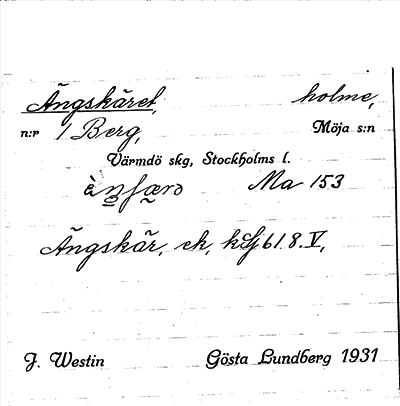 Ängskäret, holme,
n:r 1 Berg, Möja s:n
Värmdö skg, Stockholms l.
Ma 153
Ängskär, ek, 61.8.V,
J. Westin Gösta Lundberg 1931